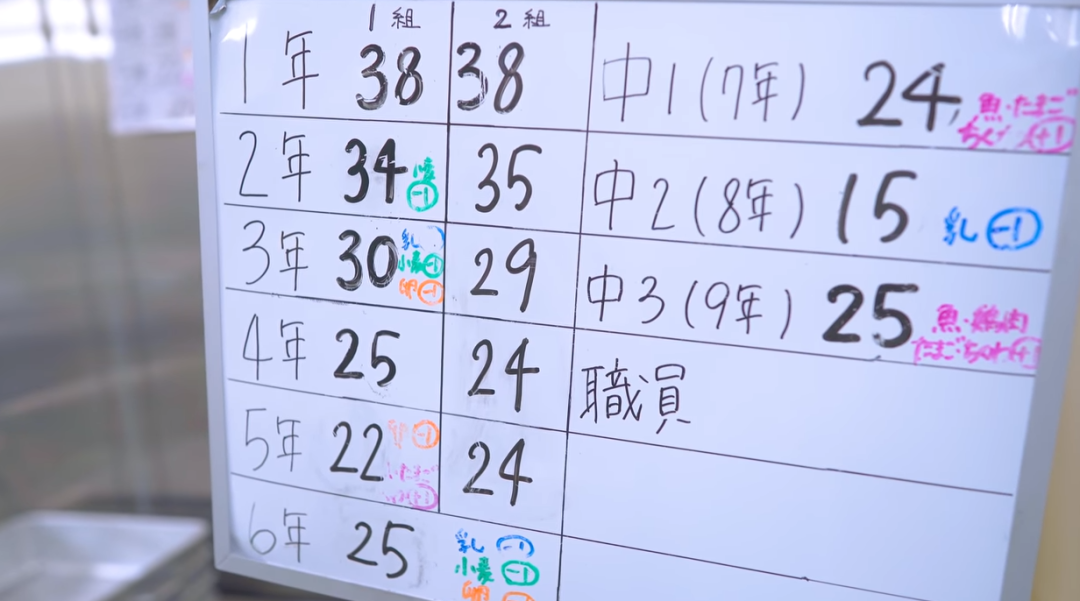 1組 2組
1年 38 38
2年 34 小麦 -1 35
3年 30 乳 小麦 -1 卵 -1 29
4年 25 24
5年 22 卵 -1 たまご 24
6年 25 乳 -1 小麦 -1 卵
中1(7年) 24 魚・たまご
+1
中2(8年) 15 乳 -1
中3(9年) 25 魚・鶏肉
たまご
職員